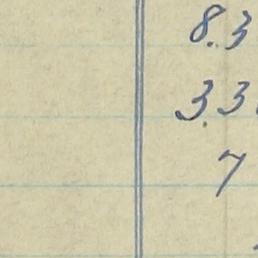 8.3
3.3
7